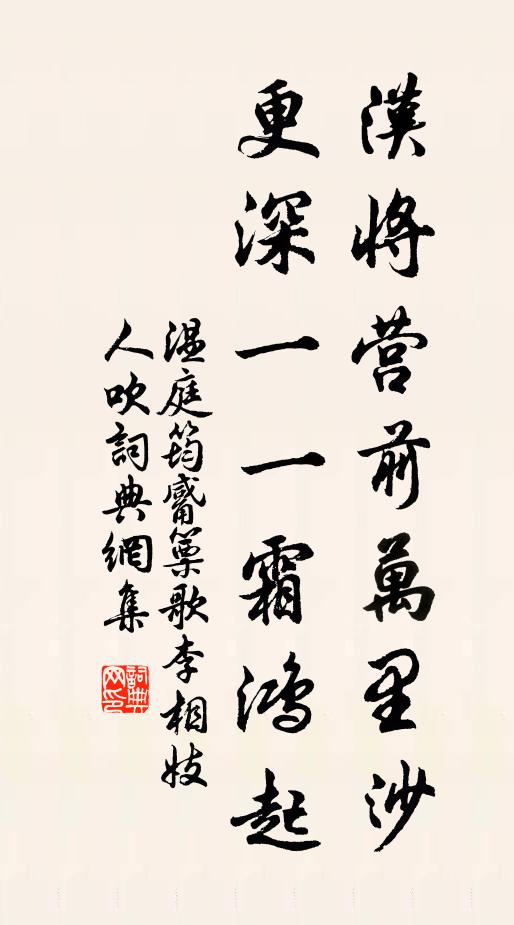 漢將營前萬里沙
更深一一霜鴻起
溫庭筠觱篥歌李相妓
人吹詞典網集
詞典
网印